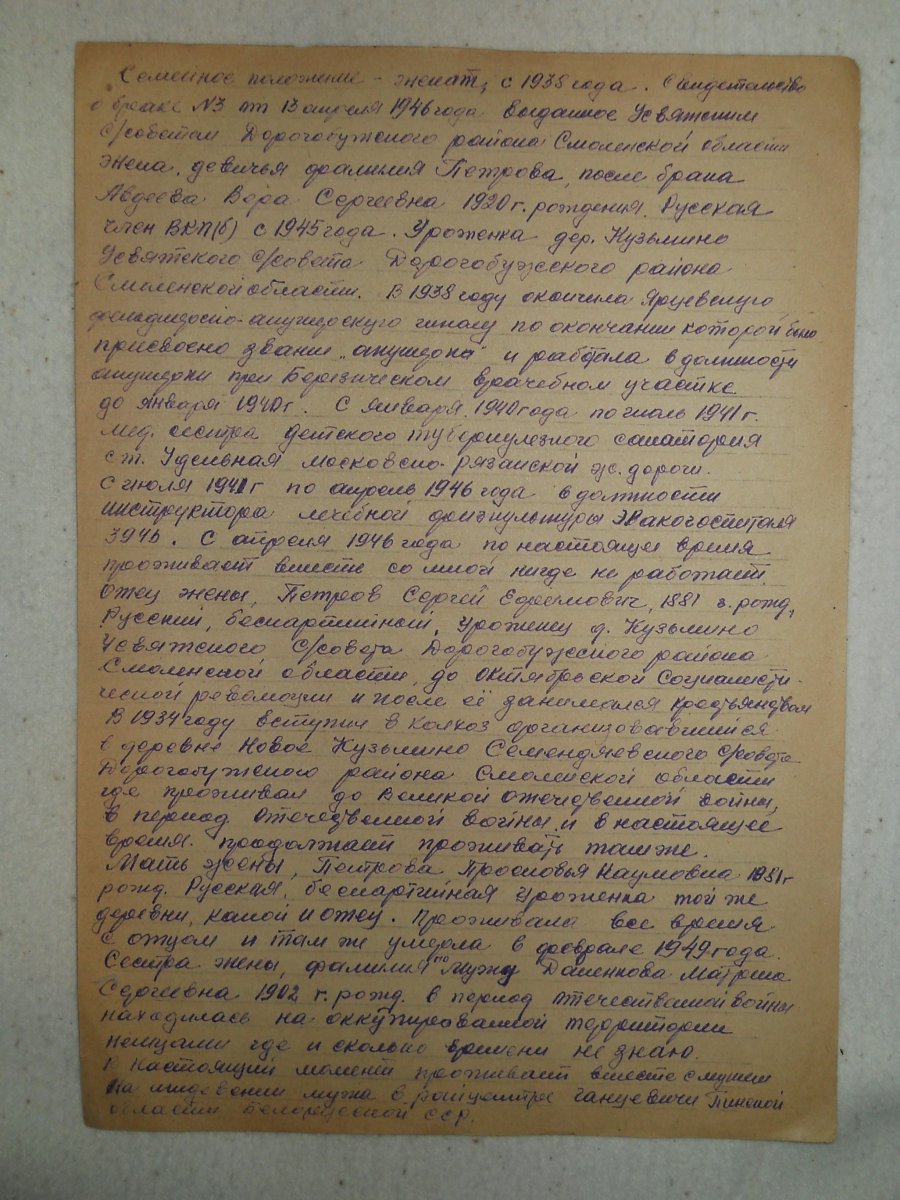 Семейное положение - женат, с 1938 года. Свидетельство
о браке №3 от 13 апреля 1946 года выданное Усвятским
С/советом Дорогобужского района Смоленской области
Жена, девичья фамилия Петрова, после брака
Авдеева Вера Сергеевна 1920 г. рождения. Русская
член ВКП(б) с 1945 года. Уроженка дер. Кузьмино
Усвятского С/совета Дорогобужского района
Смоленской области. В 1938 году окончила Ярцевскую
фельдшерско-акушерскую школу по окончании которой было
присвоено звание „акушерка" и работала в должности
акушерки при Березическом врачебном участке
до января 1940 г. С января 1940 года по июль 1941 г.
мед. сестра детского туберкулезного санатория
ст. Удельная Московско-Рязанской ж. дороги.
С июля 1941 г по апрель 1946 года в должности
инструктора лечебной физкультуры Эвакогоспиталя
3946. С апреля 1946 года по настоящее время
проживает вместе со мной нигде не работает.
Отец жены, Петров Сергей Ефремович, 1881 г. рожд,
Русский, беспартийный, уроженец д. Кузьмино
Усвятского С/совета Дорогобужского района
Смоленской области, до Октябрьской Социалисти-
ческой революции и после её занимался
В 1934 году вступил в колхоз организовавшийся
в деревне Новое Кузьмино Семендяевского С/совета
Дорогобужского района Смоленской области
где проживал до Великой Отечественной войны,
в период Отечественной войны и в настоящее
время. продолжает проживать там же.
Мать жены, Петрова Просковья Наумовна 1881 г
рожд. Русская, беспартийная уроженка той же
деревни, какой и отец. Проживала все время
с отцом и там же умерла в феврале 1949 года.
Сестра жены, фамилия по мужу Даненкова Матрена
Сергеевна 1902 г. рожд. в период Отечественной войны
находилась на оккупированной территории
немцами где и сколько времени не знаю.
В настоящий момент проживает вместе с мужем
на иждевении мужа в райцентре Ганцевичи Пинской
области Белорусской ССР.